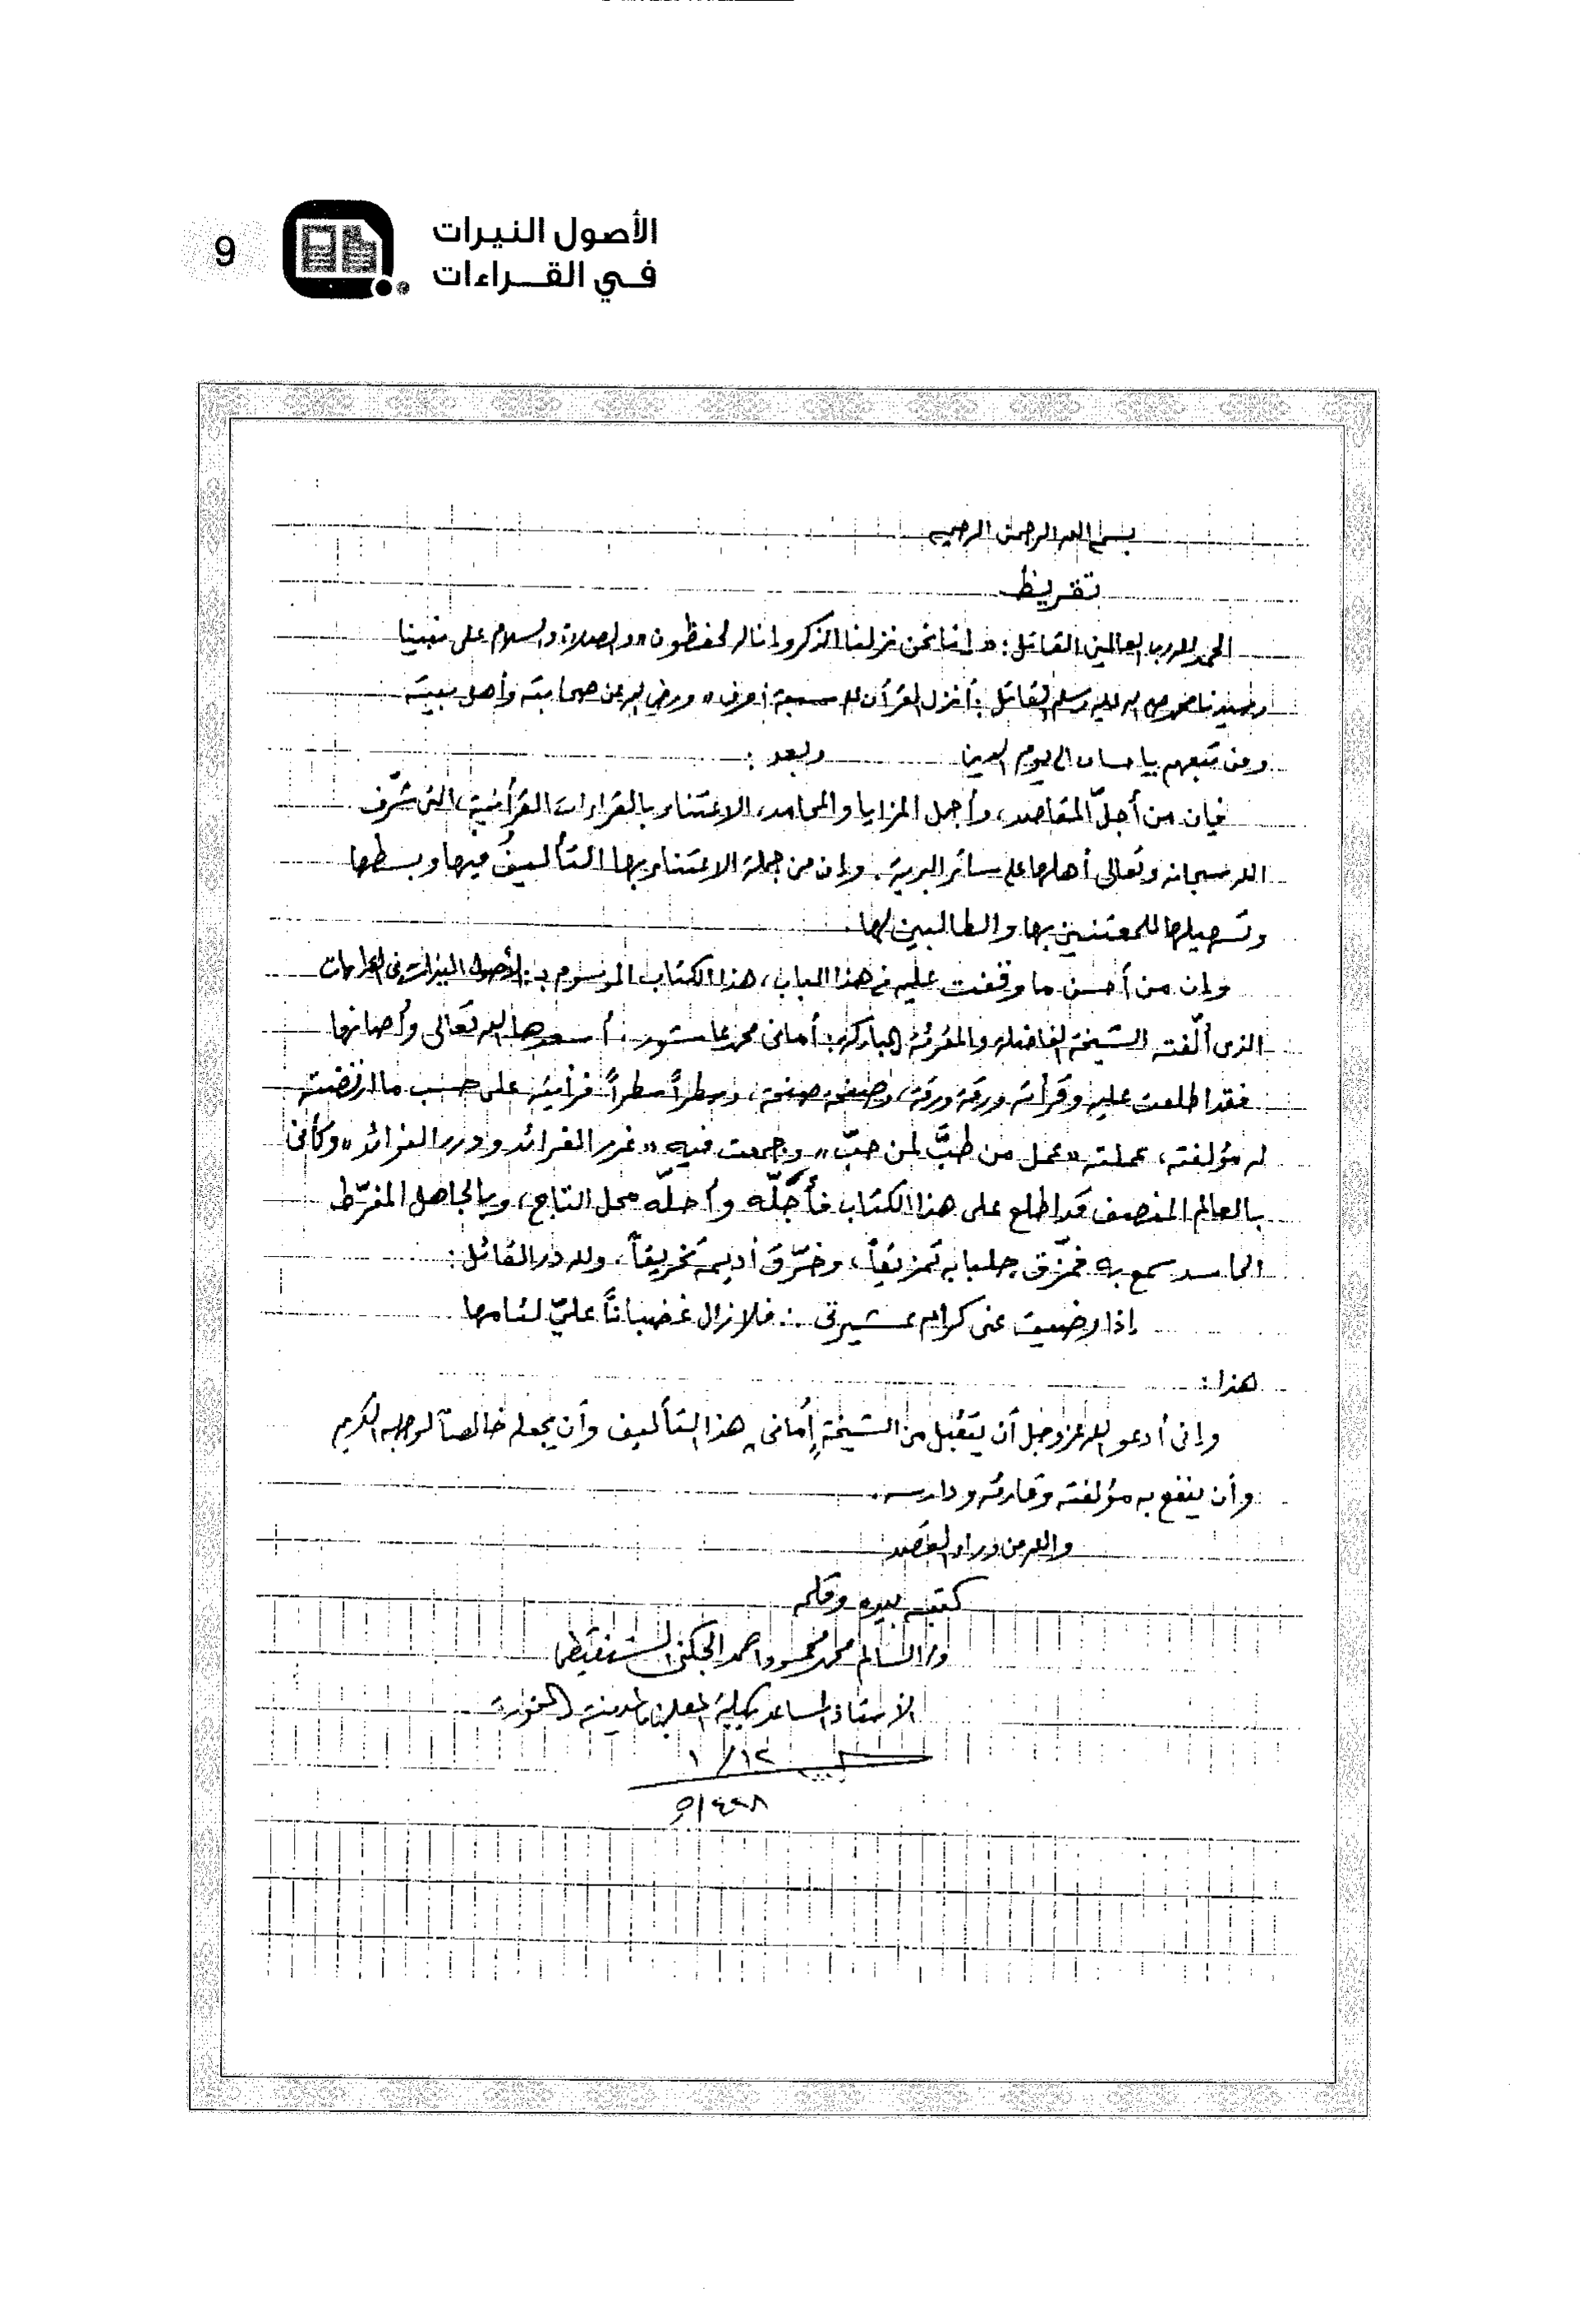 الأصول النيرات
في القراءات
9
بسم الله الرحمن الرحيم
تقريظ
الحمد لله رب العالمين القائل: «إنا نحن نزلنا الذكر وإنا له لحفظون» والصلاة والسلام على نبينا
وسيدنا محمد صلى الله عليه وسلم القائل: أنزل القرآن على سبعة أحرف» ورضي الله عن صحابته وأهل بيته
ومن تبعهم بإحسان الى يوم الدين وبعد:
فإن من أجلّ المقاصد، وأجمل المزايا والمحامد، الاعتناء بالقراءات القرآنية، التي شرّف
الله سبحانه وتعالى أهلها على سائر البرية. وإن من جملة الاعتناء بها التأليفُ فيها وبسطها
وتسهيلها للمعتنين بها والطالبين لها.
وإن من أحسن ما وقفت عليه في هذا الباب، هذا الكتاب الموسوم بـ: الأصول النيرات في القراءات
الذي ألّفته الشيخة الفاضلة والمقرئة المباركة: أماني محمد عاشور. أسعدها الله تعالى وأصانها
فقد اطلعت عليه وقرأته ورقة ورقة، وصفحة صفحة، وسطراً سطراً فرأيته على حسب ما ارتضته
له مؤلفته، عملته «عمل من طبَّ لمن حبّ» وجمعت فيه «غرر الفرائد ودرر الفوائد» وكأني
بالعالم المنصف قد اطلع على هذا الكتاب فأجلّه وأحلّه محل التاج، وبالجاهل المفرّط
الحاسد سمع به فمزّق جلبابه تمزيقاً، وخرّق أديمه تخريقاً. ولله در القائل:
إذا رضيت عني كرام عشيرتي ∴ فلا زال غضباناً عليّ لئامها
هذا:
وإني أدعو الله عز وجل أن يتقبل من الشيخة أماني هذا التأليف وأن يجعله خالصاً لوجهه الكريم
وأن ينفع به مؤلفته وقارئه ودارسه.
والله من وراء القصد
كتبه بيده وقلمه
د/ السالم محمد محمود أحمد الجكني الشنقيطي
الأستاذ المساعد بكلية المعلمين بالمدينة المنورة
١٢/ ١
١٤٢٨هـ